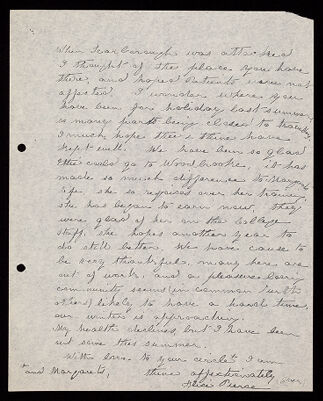 When Scarborough was attacked
I thought of the place you have
there, and hoped Patients were not
affected. I wonder where you
have been for holiday last summer
so many parts being closer to
I much hope thee & thine have
kept well. We have been so glad
Effie could go to Woodbrooke, it has
made so much difference to
life. She so rejoices over her training,
she has began to earn now. They
were glad of her on the College
staff, she hopes another year to
do still better. We have cause to
be very thankful, many here are
out of work, and a pleasure loving
community seems in common with
others likely to have a hard time,
our winter is approaching.
My health declines, but I have been
out some this summer.
With love to your circle I am
and Margaret, thine affectionately (over)
Alice Pierce